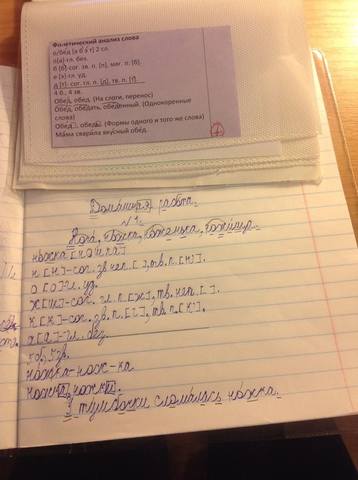 Фонетический анализ слова
о/бед [а б э т] 2 сл.
о[а]-гл. без.
б [б']-сог. зв. п. [п], мяг. п. [б]
е [э]-гл. уд.
д [т]- сог. гл. п. [д], тв. п. [т']
4 б., 4 зв.
Обед, обед. (На слоги, перенос)
Обед, обедать, обеденный. (Однокоренные
слова)
Обед, обеды. (Формы одного и того же слова)
Мама сварила вкусный обед.
Домашняя работа.
№1.
Нога, ножка, ноженька, ножища.
ножка [ношка]
н [н]-сог. зв. неп. [], тв. п. [н'].
о [о]-гл. уд.
ж [ш]-сог. гл. п. [ж], тв. неп. [].
к [к]-сог.
а [а]-гл. без.
5 зв.
ножка-нож-ка
ножка, ножки.
У тумбочки сломалась ножка.